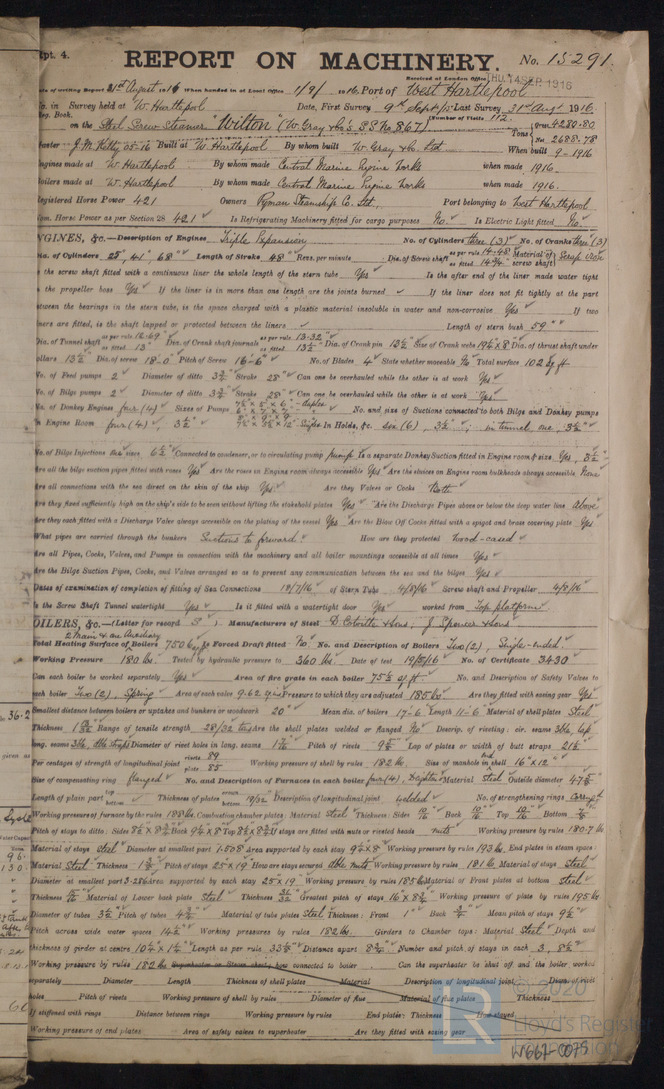 Rpt. 4.
REPORT ON MACHINERY. No. 15291.
Received at London Office THU. 14 SEP 1916
Date of writing Report 21st August 1916 When handed in at Local Office 1/9/1916 Port of West Hartlepool
No. in Survey held at W. Hartlepool Date, First Survey 9th Sept/15 Last Survey 31st Augt 1916
Reg. Book. (Number of Visits 112.
on the Steel Screw Steamer "Wilton" (W. Gray & Co's S.S. No. 867) Tons Gross 4280.80 Net 2688.78
Master J.M. Built at W. Hartlepool By whom built W. Gray & Co Ltd When built 9-1916
Engines made at W. Hartlepool By whom made Central Marine Engine Works when made 1916.
Boilers made at W. Hartlepool By whom made Central Marine Engine Works when made 1916.
Registered Horse Power 421 Owners Ryman Steamship Co. Ltd. Port belonging to West Hartlepool
Nom. Horse Power as per Section 28 421 Is Refrigerating Machinery fitted for cargo purposes No. Is Electric Light fitted No.
ENGINES, &c.—Description of Engines Triple Expansion No. of Cylinders three (3) No. of Cranks three (3)
Dia. of Cylinders 25", 41", 68" Length of Stroke 48" Revs. per minute Dia. of Screw shaft as per rule 14.48 as fitted 14¾" Material of screw shaft Scrap Iron
Is the screw shaft fitted with a continuous liner the whole length of the stern tube Yes Is the after end of the liner made water tight
in the propeller boss Yes If the liner is in more than one length are the joints burned If the liner does not fit tightly at the part
between the bearings in the stern tube, is the space charged with a plastic material insoluble in water and non-corrosive Yes If two
liners are fitted, is the shaft lapped or protected between the liners Length of stern bush 59"
Dia. of Tunnel shaft as per rule 12.69 as fitted 13" Dia. of Crank shaft journals as per rule 13.32 as fitted 13½" Dia. of Crank pin 13½" Size of Crank webs 19¼x8 Dia. of thrust shaft under
collars 13½" Dia. of screw 18-0" Pitch of Screw 16-6" No. of Blades 4 State whether moveable No Total surface 102 sq ft
No. of Feed pumps 2 Diameter of ditto 3¾" Stroke 28" Can one be overhauled while the other is at work Yes
No. of Bilge pumps 2 Diameter of ditto 3¾" Stroke 28" Can one be overhauled while the other is at work Yes
No. of Donkey Engines four (4) Sizes of Pumps No. and size of Suctions connected to both Bilge and Donkey pumps
In Engine Room four (4) 3½" In Holds, &c. six (6), 3½"; in tunnel one, 3½"
No. of Bilge Injections one sizes 6½" Connected to condenser, or to circulating pump pump Is a separate Donkey Suction fitted in Engine room & size Yes, 3½"
Are all the bilge suction pipes fitted with roses Yes Are the roses in Engine room always accessible Yes Are the sluices on Engine room bulkheads always accessible None
Are all connections with the sea direct on the skin of the ship Yes Are they Valves or Cocks Both
Are they fixed sufficiently high on the ship's side to be seen without lifting the stokehold plates Yes Are the Discharge Pipes above or below the deep water line above
Are they each fitted with a Discharge Valve always accessible on the plating of the vessel Yes Are the Blow Off Cocks fitted with a spigot and brass covering plate Yes
What pipes are carried through the bunkers Suctions to forward How are they protected Wood-cased
Are all Pipes, Cocks, Valves, and Pumps in connection with the machinery and all boiler mountings accessible at all times Yes
Are the Bilge Suction Pipes, Cocks, and Valves arranged so as to prevent any communication between the sea and the bilges Yes
Dates of examination of completion of fitting of Sea Connections 19/7/16 of Stern Tube 4/8/16 Screw shaft and Propeller 4/8/16
Is the Screw Shaft Tunnel watertight Yes Is it fitted with a watertight door Yes worked from Top platform
BOILERS, &c.—(Letter for record S) Manufacturers of Steel D. Colville & Sons; J. Spencer & Sons
2 Main & one Auxiliary
Total Heating Surface of Boilers 7506 Is Forced Draft fitted No No. and Description of Boilers Two (2), Single-ended.
Working Pressure 180 lbs. Tested by hydraulic pressure to 360 lbs. Date of test 19/5/16 No. of Certificate 3430
Can each boiler be worked separately Yes Area of fire grate in each boiler 75½ sq ft No. and Description of Safety Valves to
each boiler Two (2), Spring Area of each valve 9.62 Pressure to which they are adjusted 185 lbs. Are they fitted with easing gear Yes
Smallest distance between boilers or uptakes and bunkers or woodwork 20" Mean dia. of boilers 17-6 Length 11-6 Material of shell plates Steel
Thickness Range of tensile strength 28/32 tons Are the shell plates welded or flanged No Descrip. of riveting: cir. seams dble lap
long. seams dble straps Diameter of rivet holes in long. seams Pitch of rivets 9⅝ Lap of plates or width of butt straps 21¼
Per centages of strength of longitudinal joint rivets 89 plate 85 Working pressure of shell by rules 182 lbs. Size of manhole in shell 16" x 12"
Size of compensating ring flanged No. and Description of Furnaces in each boiler four (4), Deighton Material Steel Outside diameter 47¼"
Length of plain part top bottom Thickness of plates crown bottom 19/32 Description of longitudinal joint welded No. of strengthening rings Corrug'd
Working pressure of furnace by the rules 188 lbs. Combustion chamber plates: Material Steel Thickness: Sides Back Top Bottom
Pitch of stays to ditto: Sides 8½x8¾ Back 9¼x8 Top 8½x8¾ If stays are fitted with nuts or riveted heads nuts Working pressure by rules 180.7 lbs
Material of stays Steel Diameter at smallest part 1.508 Area supported by each stay 9¼x8 Working pressure by rules 193 lbs. End plates in steam space:
Material Steel Thickness Pitch of stays 25 x 19 How are stays secured dble nuts Working pressure by rules 181 lbs Material of stays Steel
Diameter at smallest part 3.28 Area supported by each stay 25 x 19 Working pressure by rules 185 lbs Material of Front plates at bottom Steel
Thickness Material of Lower back plate Steel Thickness Greatest pitch of stays 14 x 8¾ Working pressure of plate by rules 195 lbs
Diameter of tubes 3½ Pitch of tubes 4¾ Material of tube plates Steel Thickness: Front 1" Back Mean pitch of stays 9½
Pitch across wide water spaces 14½ Working pressures by rules 182 lbs. Girders to Chamber tops: Material Steel Depth and
thickness of girder at centre 10¼ x 1¼ Length as per rule 33⅝ Distance apart 8¾ Number and pitch of stays in each 3, 8½
Working pressure by rules 182 lbs Superheater or Steam chest; how connected to boiler Can the superheater be shut off and the boiler worked
separately Diameter Length Thickness of shell plates Material Description of longitudinal joint Diam. of rivet
holes Pitch of rivets Working pressure of shell by rules Diameter of flue Material of flue plates Thickness
If stiffened with rings Distance between rings Working pressure by rules End plates: Thickness How stayed
Working pressure of end plates Area of safety valves to superheater Are they fitted with easing gear
© 2020
LR
Lloyd's Register
Foundation
W667-0075